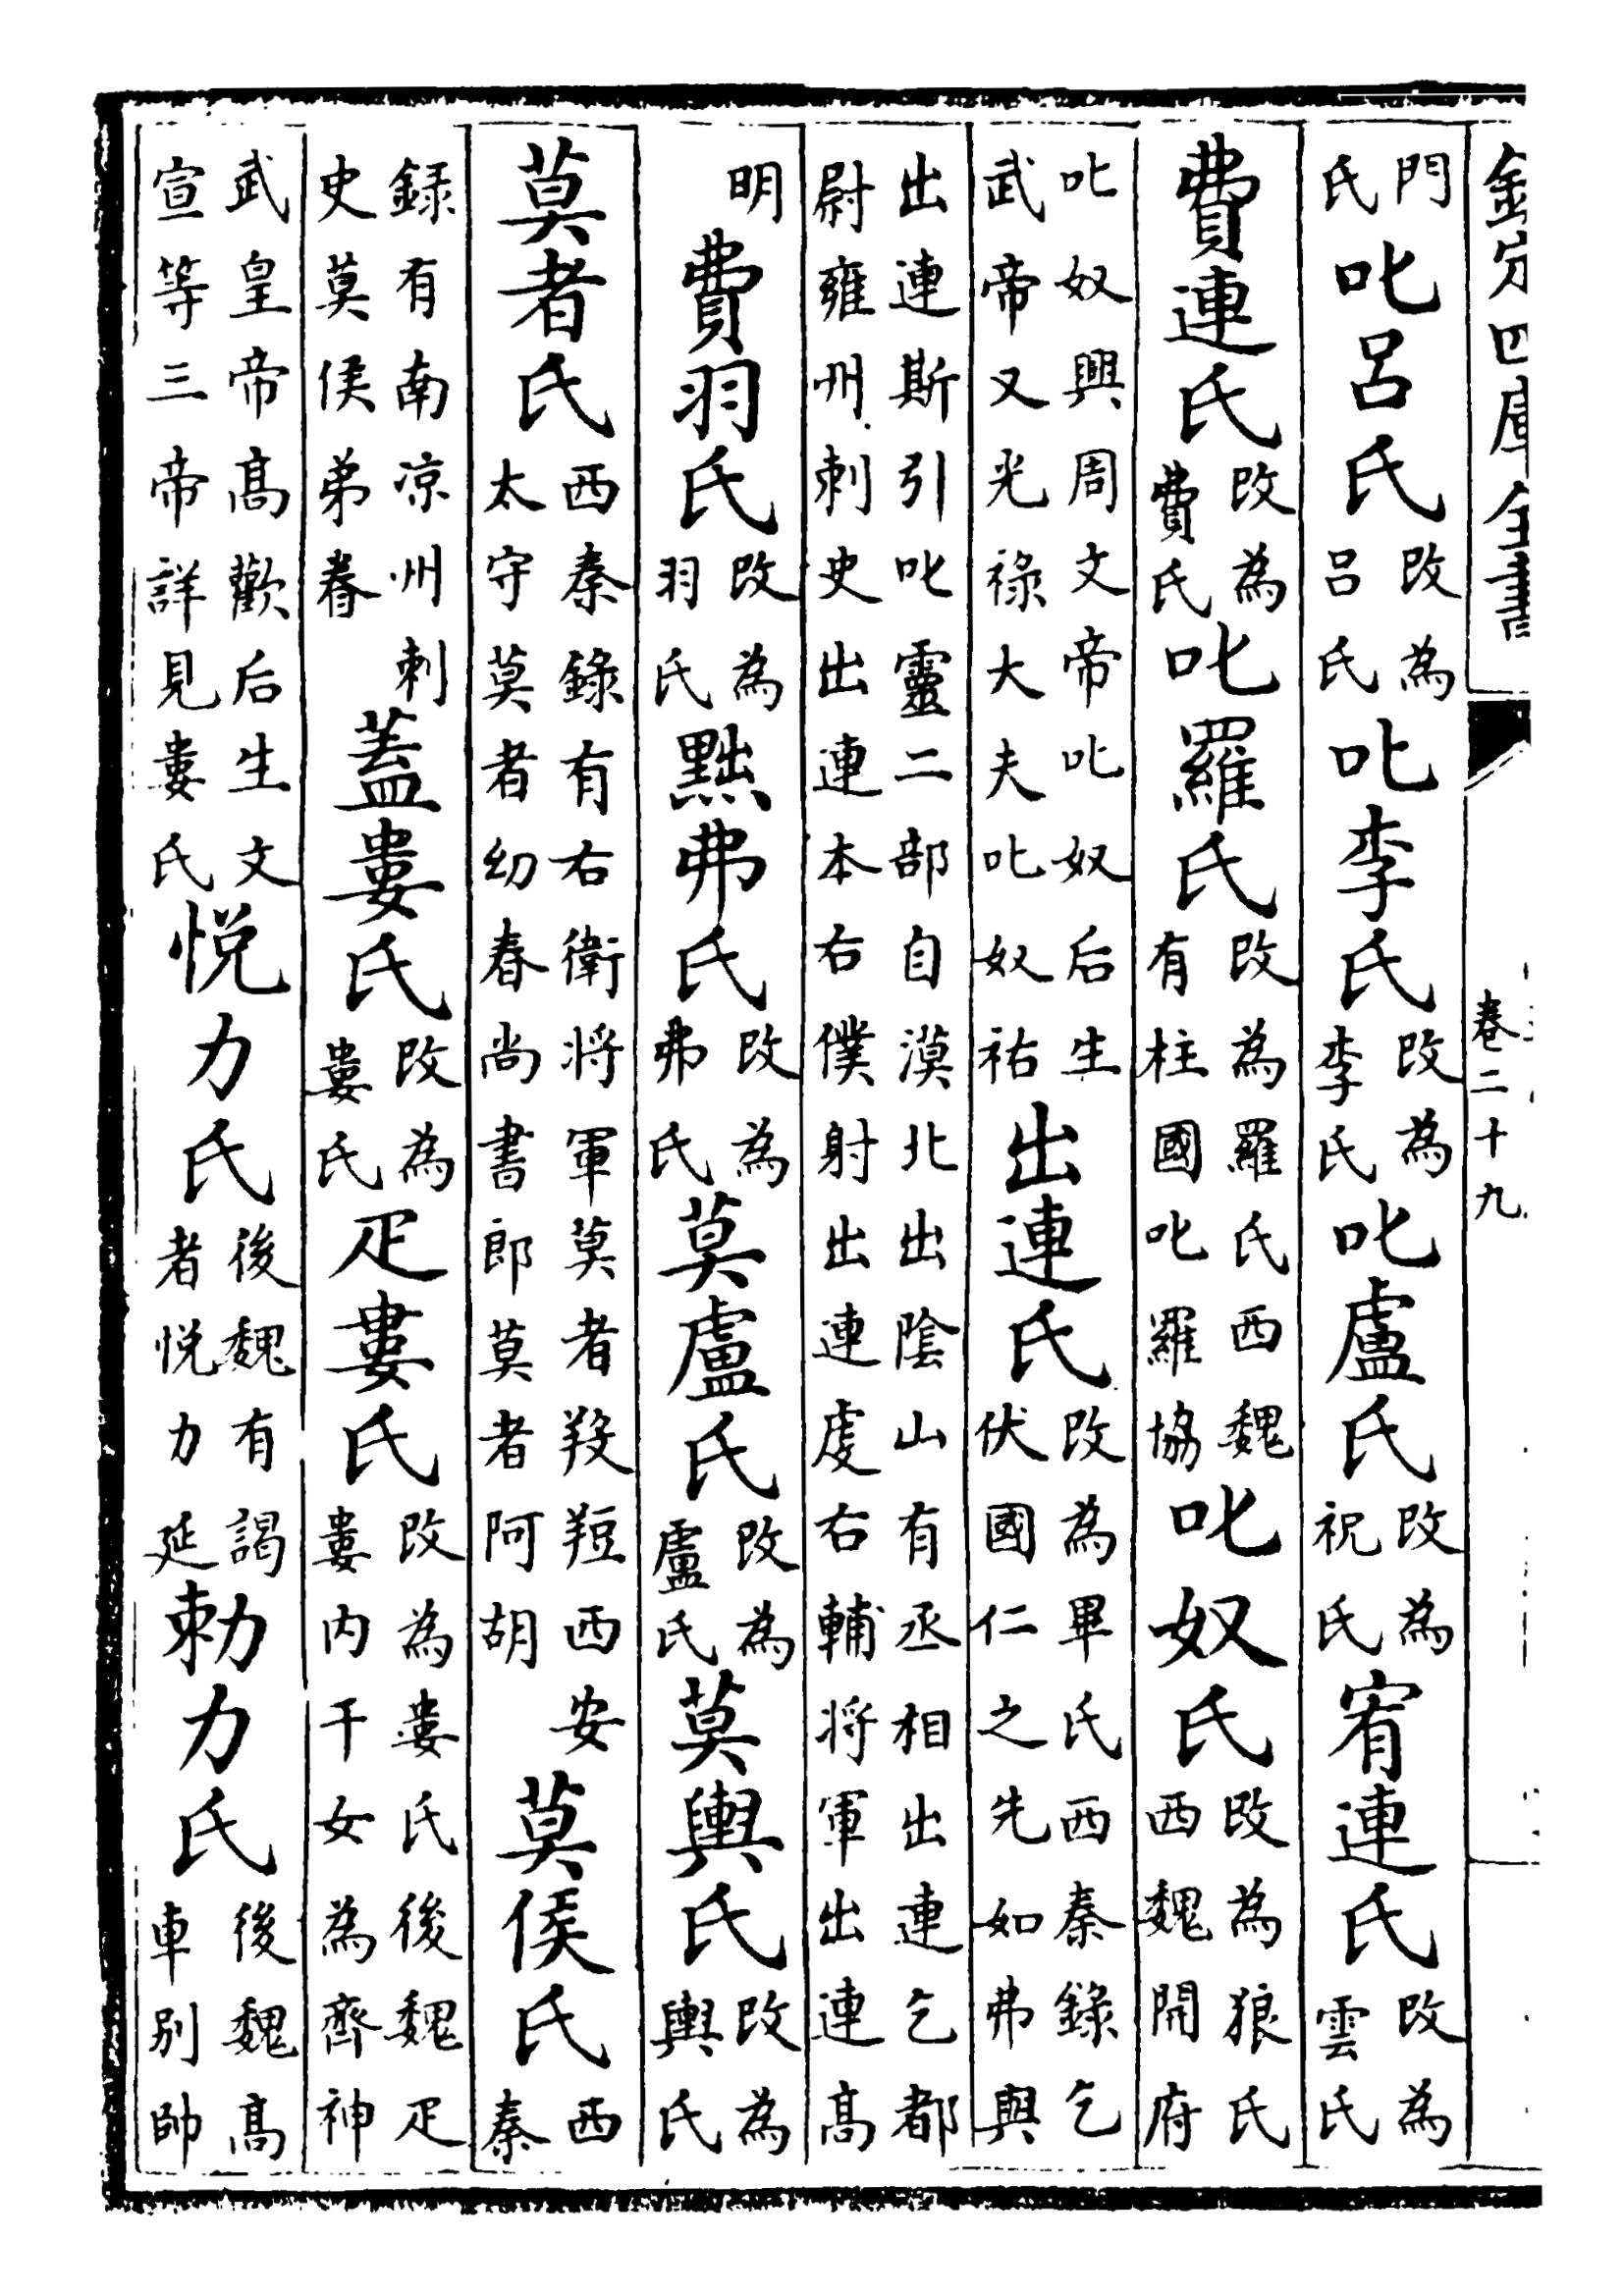 欽定四庫全書 卷二十九
門氏叱呂氏改為呂氏叱李氏改為李氏叱盧氏改為祝氏宥連氏改為雲氏
費連氏改為費氏叱羅氏改為羅氏西魏有柱國叱羅協叱奴氏改為狼氏西魏開府
叱奴興周文帝叱奴后生武帝又光祿大夫叱奴祐出連氏改為畢氏西秦錄乞伏國仁之先如弗與
出連斯引叱靈二部自漠北出陰山有丞相出連乞都尉雍州刺史出連本右僕射出連虔右輔將軍出連高
明費羽氏改為羽氏黜弗氏改為弗氏莫盧氏改為盧氏莫輿氏改為輿氏
莫者氏西秦錄有右衛將軍莫者羖西安太守莫者幼春尚書郎莫者阿胡莫侯氏西秦
録有南凉州刺史莫侯弟眷蓋婁氏改為婁氏疋婁氏改為婁氏後魏疋婁内干女為齊神
武皇帝高歡后生文宣等三帝詳見婁氏悅力氏後魏有謁者悅力延勅力氏後魏高車別帥